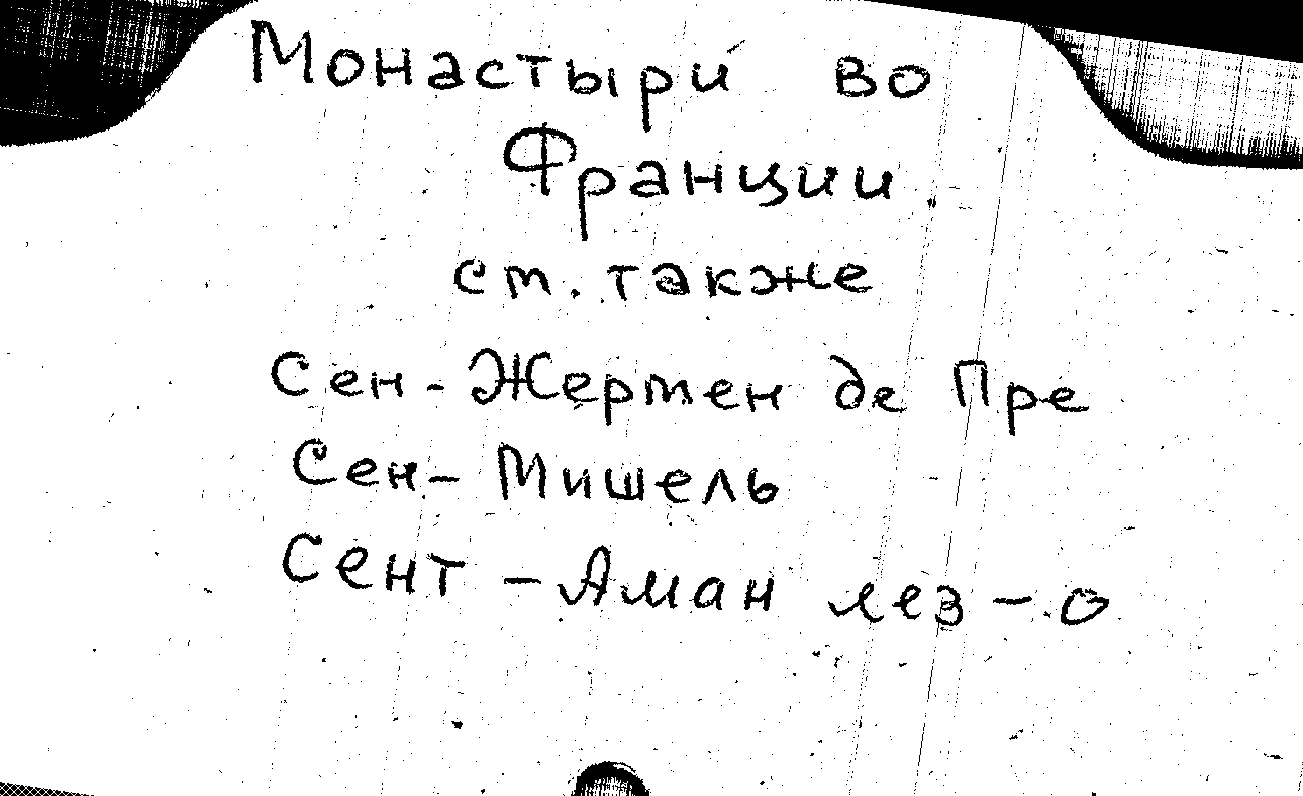 Монастыри во
Франции
см. также
Сен-Жермен де Пре
Сен-Мишель
Сент-Аман лез-О